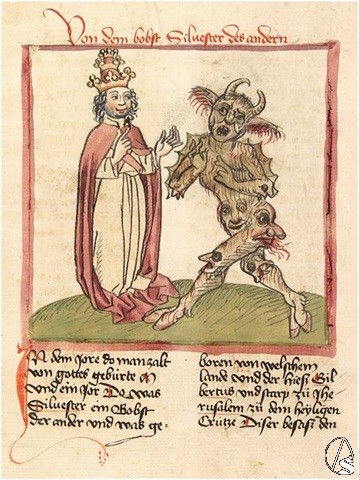 Von dem bobst Siluester des andern
In dem jore do man zalt
von gottes gebürte M
vnd ein jor Do was
Siluester ein Bobst
der ander vnd was ge-
boren von welschem
lande vnd der hies Gil
bertus vnd starp zu Jhe-
rusalem zu dem heyligen
Crütze Diser besass den